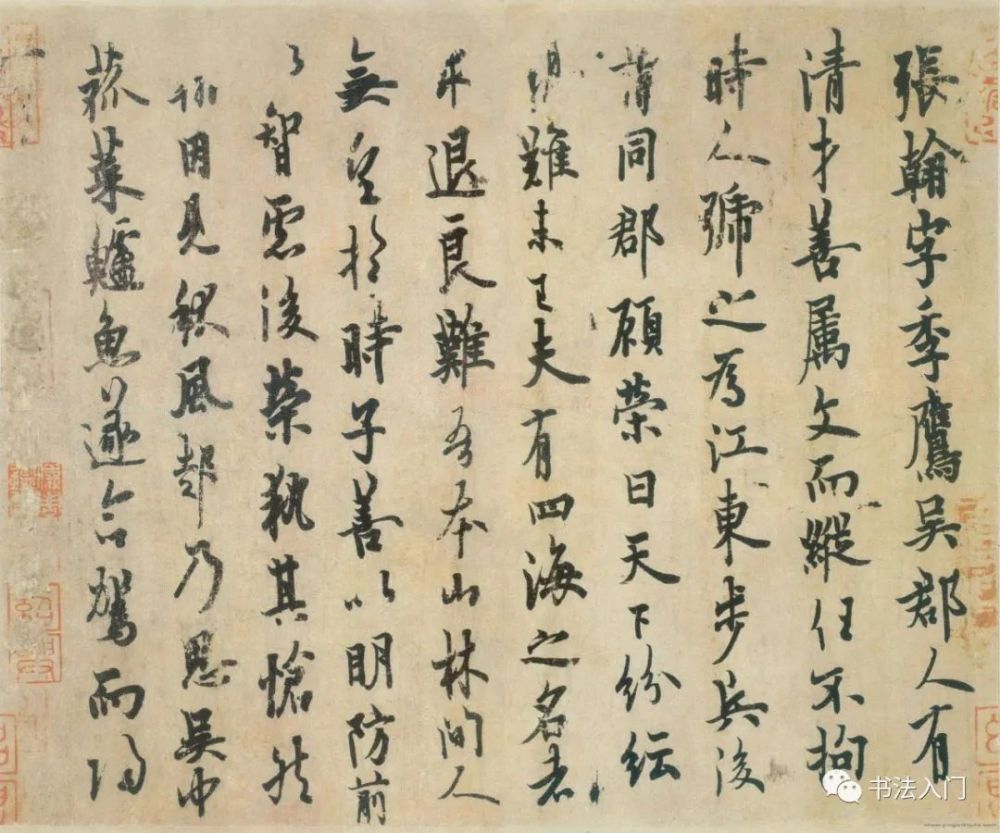 張翰字季鷹吳郡人有
清才善屬文而縱任不拘
時人號之為江東步兵後
謂同郡顧榮曰天下紛紜
難未已夫有四海之名者
求退良難吾本山林間人
無望於時子善以明防前
以智慮後榮執其愴然
因見秋風起乃思吳中
菰菜鱸魚遂命駕而歸
书法入门